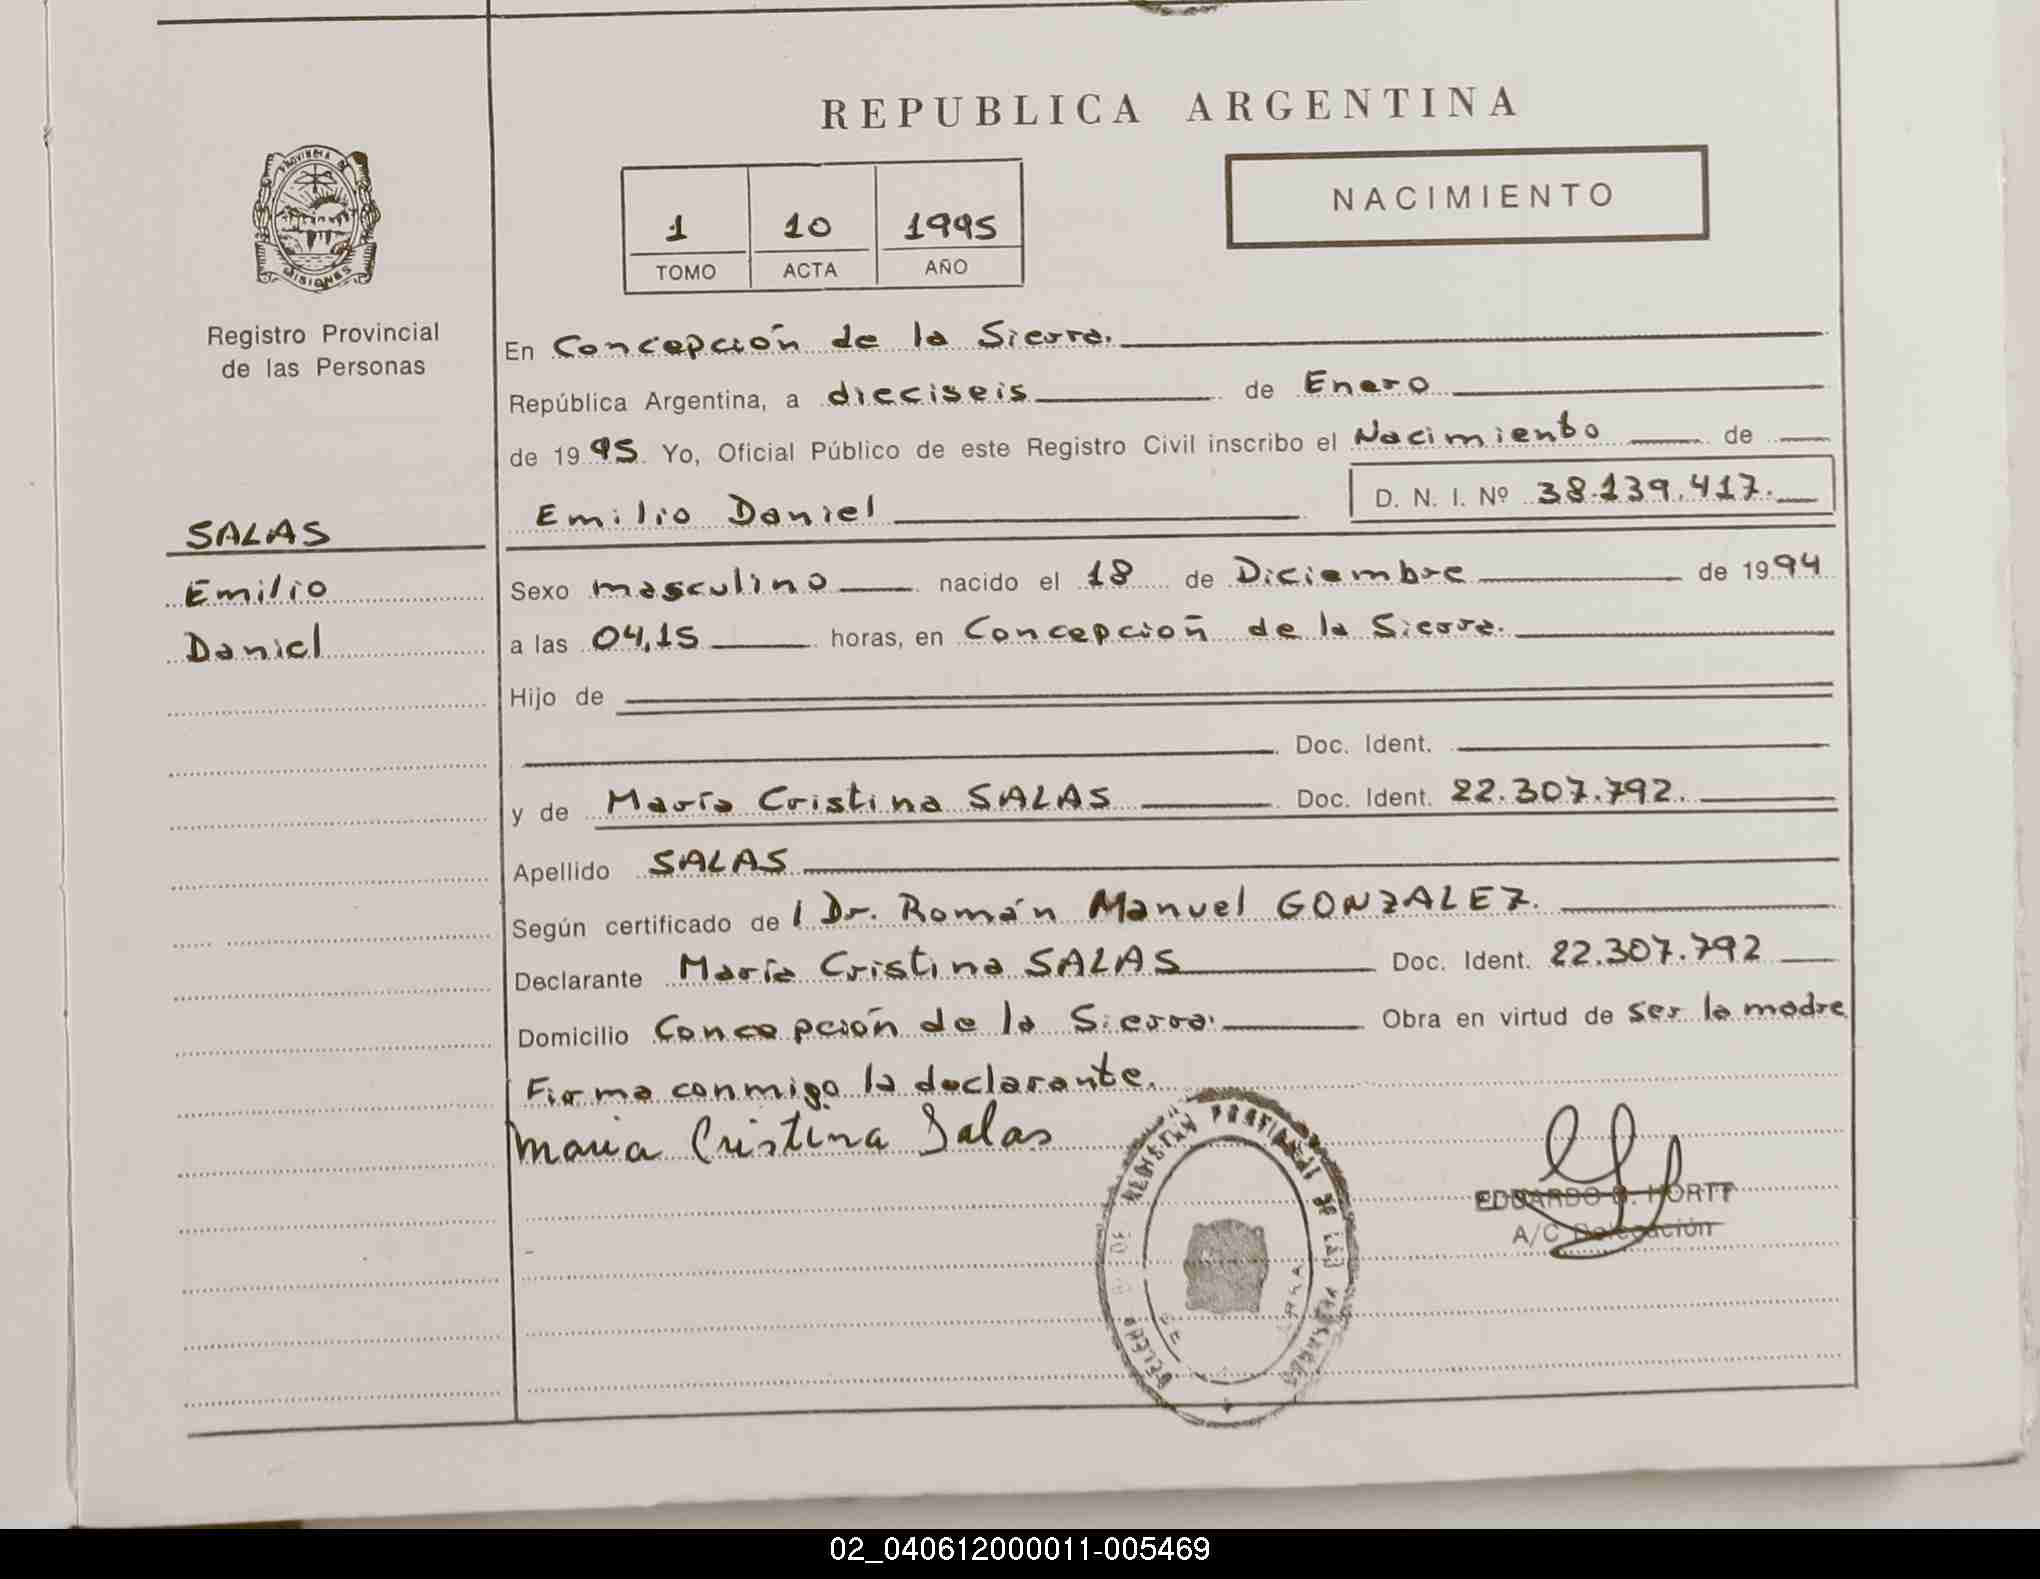 REPUBLICA ARGENTINA
PROVINCIA DE
MISIONES
Registro Provincial
de las Personas
1 10 1995
TOMO ACTA AÑO
NACIMIENTO
En Concepción de la Sierra.
República Argentina, a dieciseis de Enero
de 1995 Yo, Oficial Público de este Registro Civil inscribo el Nacimiento de
Emilio Daniel D. N. I. Nº 38.139.417.
SALAS
Emilio
Daniel
Sexo masculino nacido el 18 de Diciembre de 1994
a las 04,15 horas, en Concepción de la Sierra.
Hijo de
Doc. Ident.
y de María Cristina SALAS Doc. Ident. 22.307.792.
Apellido SALAS
Según certificado de l Dr. Román Manuel GONZALEZ.
Declarante María Cristina SALAS Doc. Ident. 22.307.792
Domicilio Concepción de la Sierra. Obra en virtud de ser la madre
Firma conmigo la declarante.
Maria Cristina Salas
REGISTRO PROVINCIAL DE LAS PERSONAS
EDUARDO HORTT
A/C Delegación
02_040612000011-005469